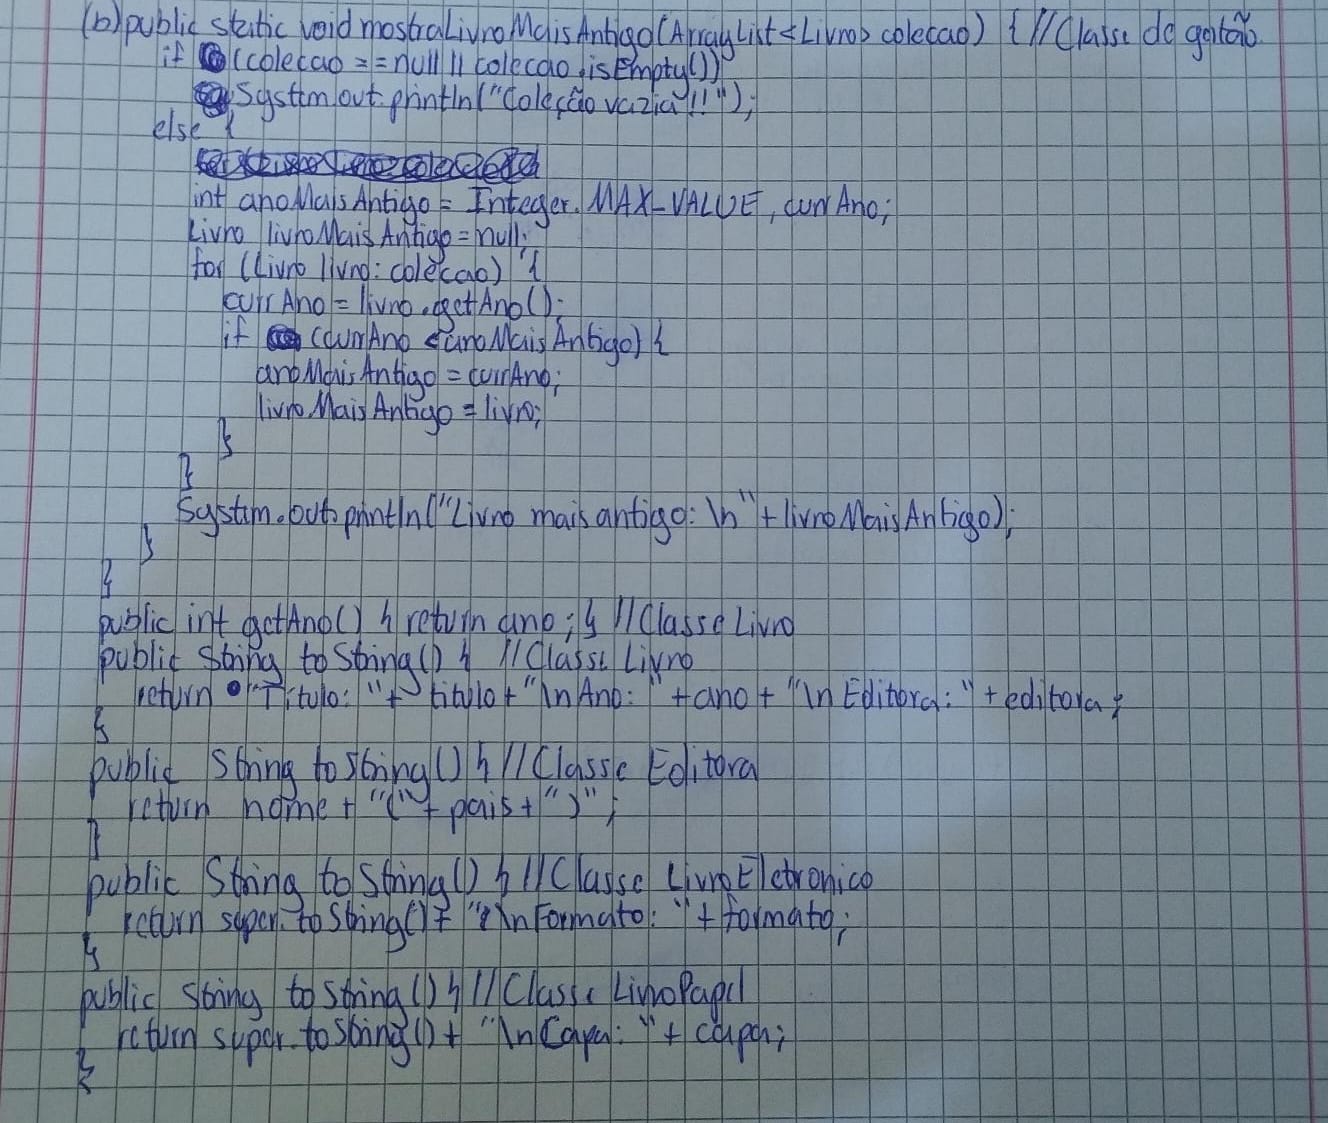 (b) public static void mostraLivroMaisAntigo(ArrayList<Livro> colecao) { //Classe de gestão
if (colecao == null || colecao.isEmpty())
System.out.println("Coleção vazia!!");
else {
int anoMaisAntigo = Integer.MAX_VALUE, currAno;
Livro livroMaisAntigo = null;
for (Livro livro: colecao) {
currAno = livro.getAno();
if (currAno < anoMaisAntigo) {
anoMaisAntigo = currAno;
livroMaisAntigo = livro;
}
}
System.out.println("Livro mais antigo: \n" + livroMaisAntigo);
}
}
public int getAno() { return ano; } //Classe Livro
public String toString() { //Classe Livro
return "Título: " + titulo + "\nAno: " + ano + "\nEditora: " + editora;
}
public String toString() { //Classe Editora
return nome + "(" + pais + ")";
}
public String toString() { //Classe LivroEletronico
return super.toString() + "\nFormato: " + formato;
}
public String toString() { //Classe LivroPapel
return super.toString() + "\nCapa: " + capa;
}